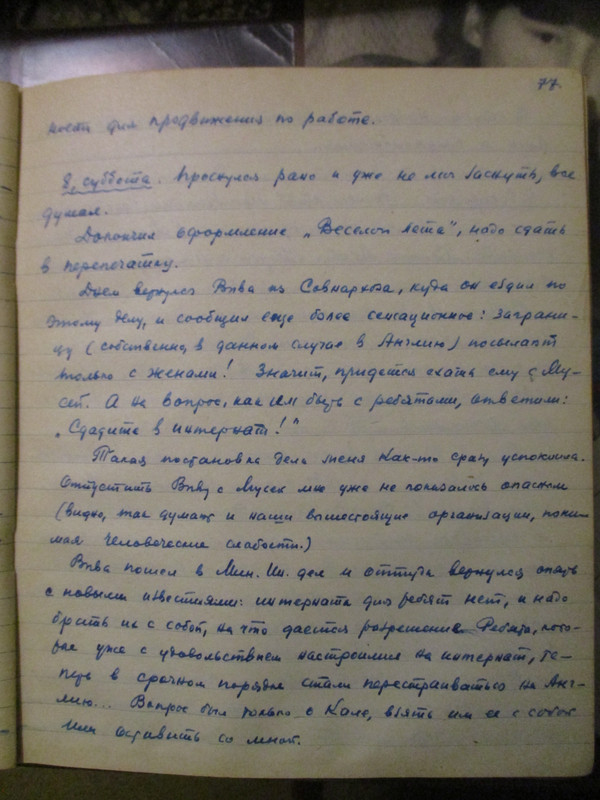 77.
ности для продвижения по работе.
8, суббота. Проснулся рано и уже не мог заснуть, все
думал.
Докончил оформление „Веселой лета", надо сдать
в перепечатку.
Днем вернулся Вова из Совнархоза, куда он ездил по
этому делу, и сообщил еще более сенсационное: заграни-
цу (собственно, в данном случае в Англию) посылают
только с женами! Значит, придется ехать ему с Му-
сей. А на вопрос, как им быть с ребятами, ответили:
„Сдадите в интернат!"
Такая постановка дела меня как-то сразу успокоила.
Отпустить Вову с Мусей мне уже не показалось опасным
(видно, так думают и наши вышестоящие организации, пони-
мая человеческие слабости.)
Вова пошел в Мин. Ин. дел и оттуда вернулся опять
с новыми известиями: интерната для ребят нет, и надо
брать их с собой, на что дается разрешение. Ребята, кото-
рые уже с удовольствием настроились на интернат, те-
перь в срочном порядке стали перестраиваться на Анг-
лию... Вопрос был только о Кале, взять им ее с собой
или оставить со мной.